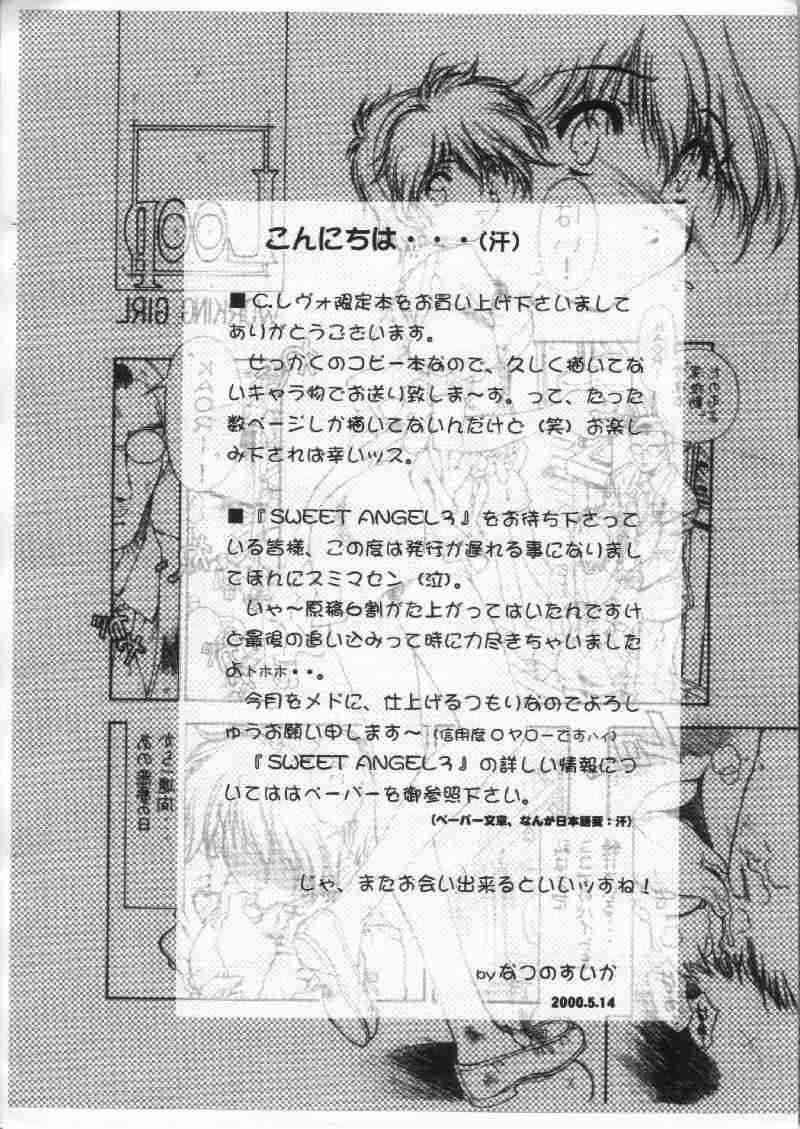 こんにちは・・・(汗)
■C.レヴォ限定本をお買い上げ下さいまして
ありがとうございます。
せっかくのコピー本なので、久しく描いてな
いキャラ物でお送り致しま～す。って、たった
数ページしか描いてないんだけど（笑）お楽し
み下されば幸いッス。
■『SWEET ANGEL3』をお待ち下さって
いる皆様、この度は発行が遅れる事になりまし
てほんにスミマセン（泣）。
いゃ～原稿6割がた上がってはいたんですけ
ど最後の追い込みって時に力尽きちゃいました
よトホホ・・。
今月をメドに、仕上げるつもりなのでよろし
ゅうお願い申します～（信用度0ヤローですハイ）
『SWEET ANGEL3』の詳しい情報につ
いてはペーパーを御参照下さい。
（ペーパー文章、なんか日本語変：汗）
じゃ、またお会い出来るといいッすね！
by なつのすいか
2000.5.14
はい！
WORKING GIRL